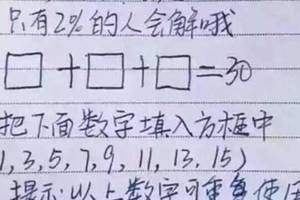 只有2%的人会解哦
□+□+□=30
把下面数字填入方框中
1,3,5,7,9,11,13.15)
提示:以上数字可重复使用